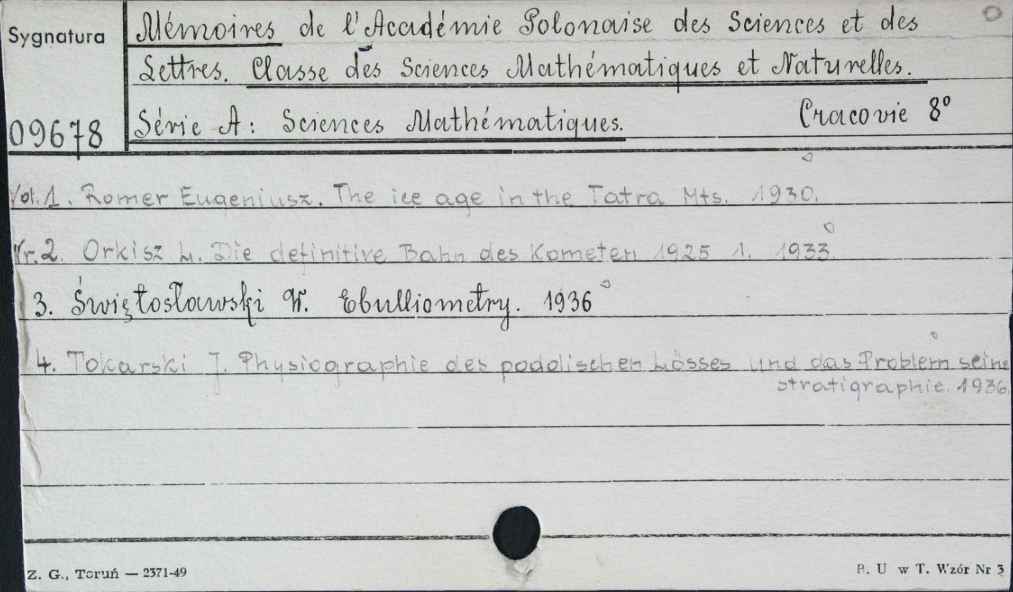 Sygnatura
Mémoires de l'Académie Polonaise des Sciences et des
Lettres. Classe des Sciences Mathématiques et Naturelles.
09678
Série A: Sciences Mathématiques. Cracovie 8°
Vol. 1. Romer Eugeniusz. The ice age in the Tatra Mts. 1930.
Nr. 2. Orkisz L. Die definitive Bahn des Kometen 1925 1. 1933.
3. Świętosławski W. Ebulliometry. 1936
4. Tokarski J. Physiographie des podolischen Lösses und das Problem seine
stratigraphie. 1936.
Z. G., Toruń — 2371-49
B. U w T. Wzór Nr 3